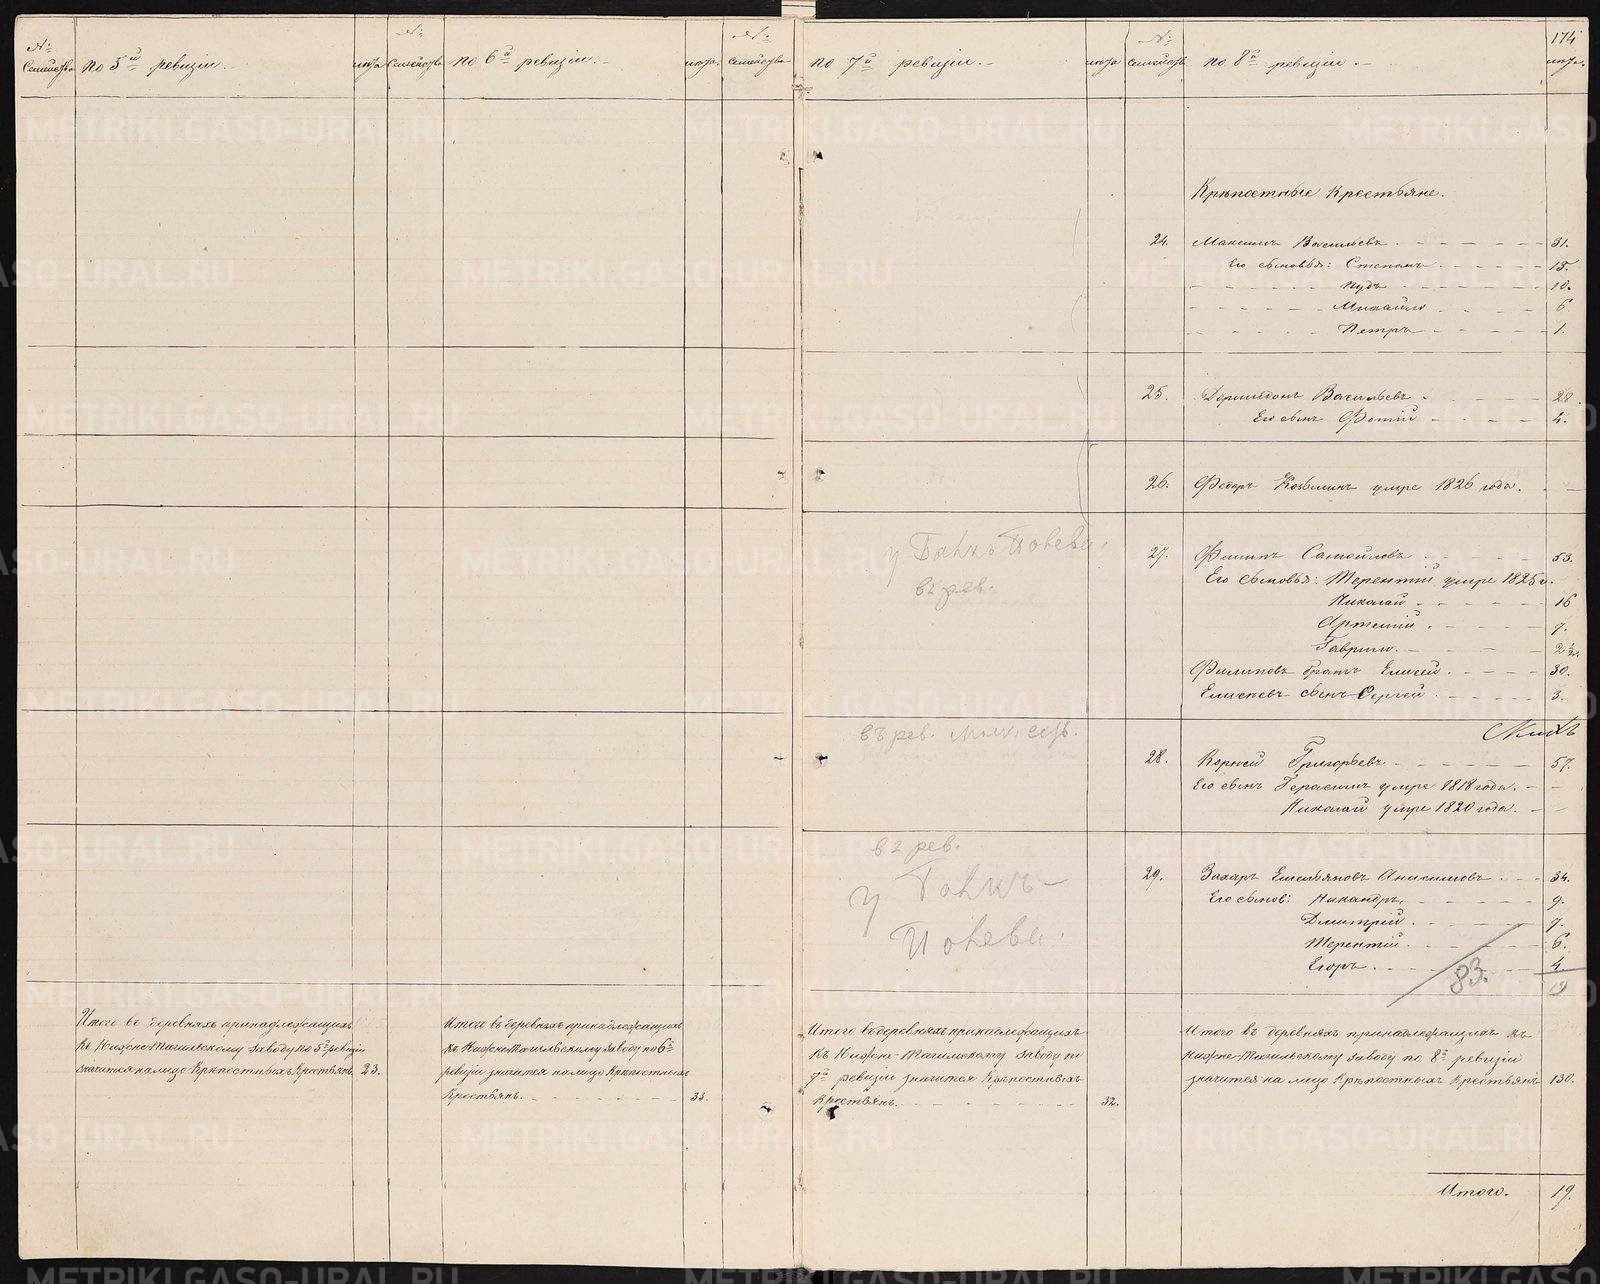 № Семейства
по 5й ревизіи.
лѣта
№ Семейства
по 6й ревизіи.
лѣта.
№ Семейства
по 7й ревизіи.
лѣта
№ Семейства
по 8й ревизіи.
174
лѣта.
Крѣпостные Крестьяне.
24. Максимъ Васильевъ 31.
Его сыновья: Степанъ 15.
Нудъ 10.
Михайло 6
Петръ 1.
25. Дормидонъ Васильевъ 28.
Его сынъ Фотій 4.
26. Федоръ Козьминъ умре 1826 года.
у
в 2 рев.
27. Филипъ Самойловъ 53.
Его сыновья: Терентій умре 1825 г.
Николай 16
Артемій 7.
Гаврило 2½.
Филиповъ братъ Елисей 30.
Елисеевъ сынъ Сергей 3.
въ рев.
28. Корней Григорьевъ 57.
Его сынъ Герасимъ умре 1818 года.
Николай умре 1820 года.
в 2 рев.
у
29. Захаръ Емельяновъ Анисимовъ 34.
Его сынов: Никандръ, 9.
Дмитрій 7.
Терентій 6.
Егоръ 4.
83.
19
Итого въ деревняхъ принадлежащихъ
къ Нижне-Тагильскому заводу по 5й ревизіи
значится на лицо Крѣпостныхъ Крестьянъ 23.
Итого въ деревняхъ принадлежащихъ
къ Нижне-Тагильскому заводу по 6й
ревизіи значится на лицо Крѣпостныхъ
Крестьянъ. 33.
Итого въ деревняхъ принадлежащихъ
къ Нижне-Тагильскому заводу по
7й ревизіи значится Крѣпостныхъ
Крестьянъ. 32.
Итого въ деревняхъ принадлежащихъ къ
Нижне-Тагильскому заводу по 8й ревизіи
значится на лицо Крѣпостныхъ Крестьянъ 130.
Итого. 19.
METRIKI.GASO-URAL.RU